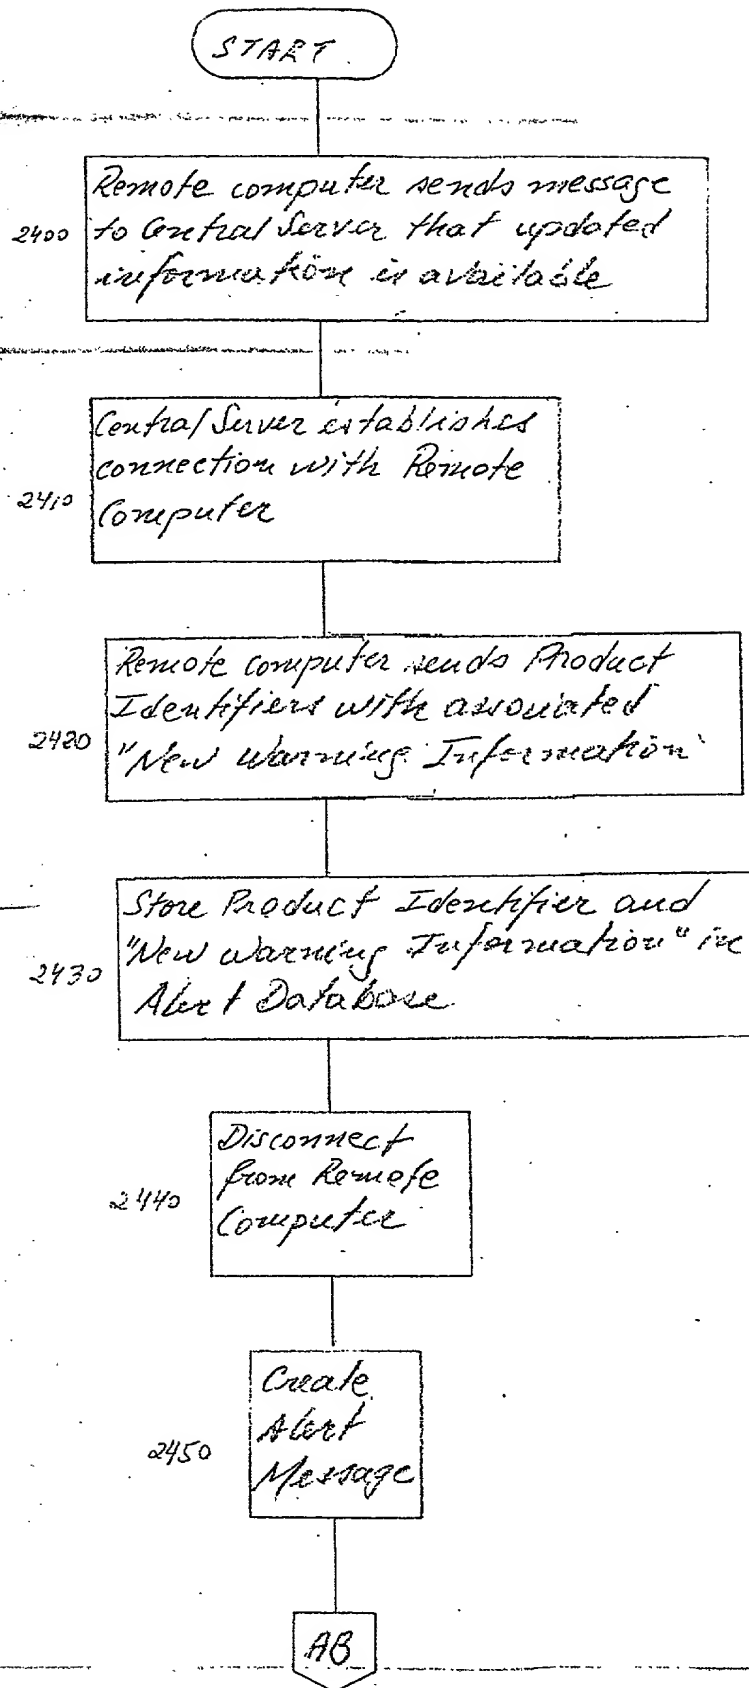 START
Remote computer sends message
2400 to Central Server that updated
information is available
Central Server establishes
connection with Remote
2410 Computer
Remote computer sends Product
Identifiers with associated
2420 "New Warning Information"
Store Product Identifier and
"New Warning Information" in
2430 Alert Database
Disconnect
from Remote
2440 Computer
Create
2450 Alert
Message
AB